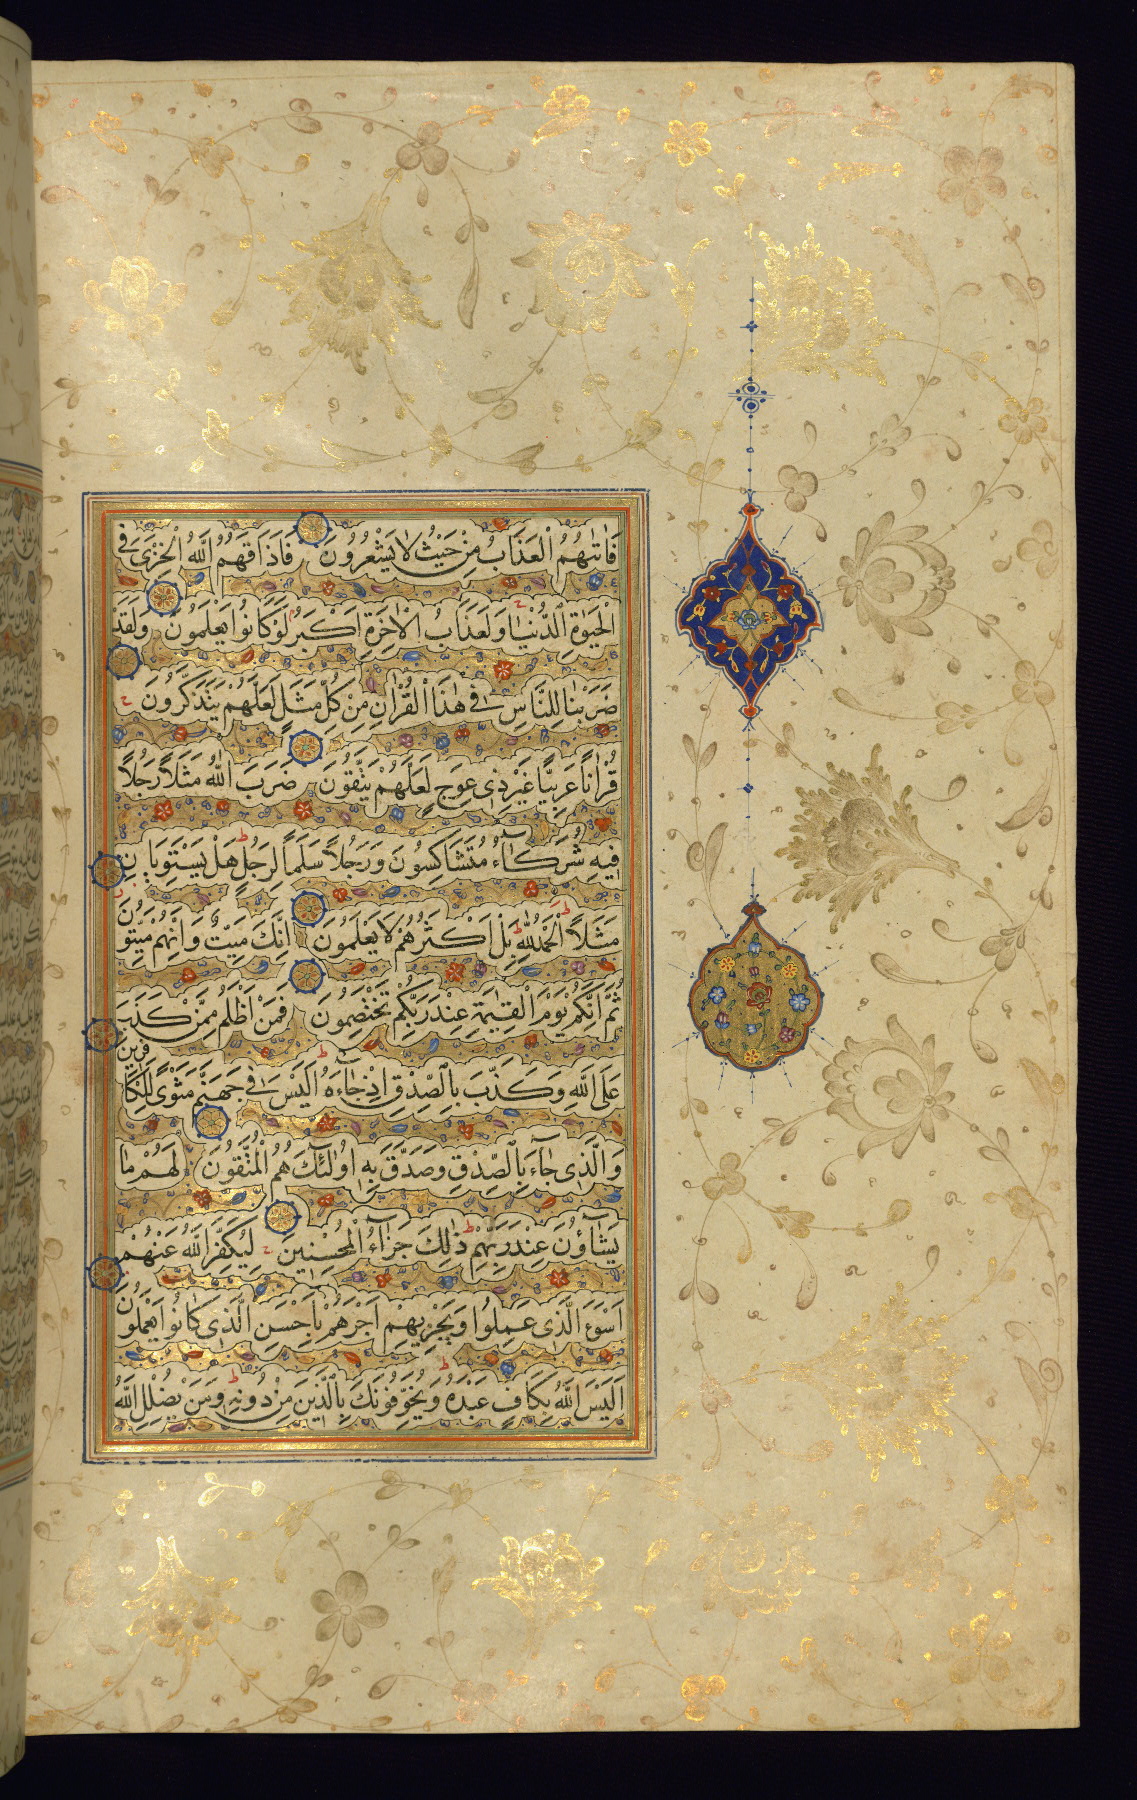 فَاَتٰيهُمُ الْعَذَابُ مِنْ حَيْثُ لَا يَشْعُرُونَ فَاَذَاقَهُمُ اللّٰهُ الْخِزْىَ فِى
الْحَيٰوةِ الدُّنْيَا وَلَعَذَابُ الْاٰخِرَةِ اَكْبَرُ لَوْ كَانُوا يَعْلَمُونَ وَلَقَدْ
ضَرَبْنَا لِلنَّاسِ فِى هٰذَا الْقُرْاٰنِ مِنْ كُلِّ مَثَلٍ لَعَلَّهُمْ يَتَذَكَّرُونَ
قُرْاٰنًا عَرَبِيًّا غَيْرَ ذِى عِوَجٍ لَعَلَّهُمْ يَتَّقُونَ ضَرَبَ اللّٰهُ مَثَلًا رَجُلًا
فِيهِ شُرَكَاءُ مُتَشَاكِسُونَ وَرَجُلًا سَلَمًا لِرَجُلٍ هَلْ يَسْتَوِيَانِ
مَثَلًا اَلْحَمْدُ لِلّٰهِ بَلْ اَكْثَرُهُمْ لَا يَعْلَمُونَ اِنَّكَ مَيِّتٌ وَاِنَّهُمْ مَيِّتُونَ
ثُمَّ اِنَّكُمْ يَوْمَ الْقِيٰمَةِ عِنْدَ رَبِّكُمْ تَخْتَصِمُونَ فَمَنْ اَظْلَمُ مِمَّنْ كَذَبَ
عَلَى اللّٰهِ وَكَذَّبَ بِالصِّدْقِ اِذْ جَاءَهُ اَلَيْسَ فِى جَهَنَّمَ مَثْوًى لِلْكَافِرِينَ
وَالَّذِى جَاءَ بِالصِّدْقِ وَصَدَّقَ بِهِ اُولٰئِكَ هُمُ الْمُتَّقُونَ لَهُمْ مَا
يَشَاؤُنَ عِنْدَ رَبِّهِمْ ذٰلِكَ جَزَاءُ الْمُحْسِنِينَ لِيُكَفِّرَ اللّٰهُ عَنْهُمْ
اَسْوَءَ الَّذِى عَمِلُوا وَيَجْزِيَهُمْ اَجْرَهُمْ بِاَحْسَنِ الَّذِى كَانُوا يَعْمَلُونَ
اَلَيْسَ اللّٰهُ بِكَافٍ عَبْدَهُ وَيُخَوِّفُونَكَ بِالَّذِينَ مِنْ دُونِهِ وَمَنْ يُضْلِلِ اللّٰهُ